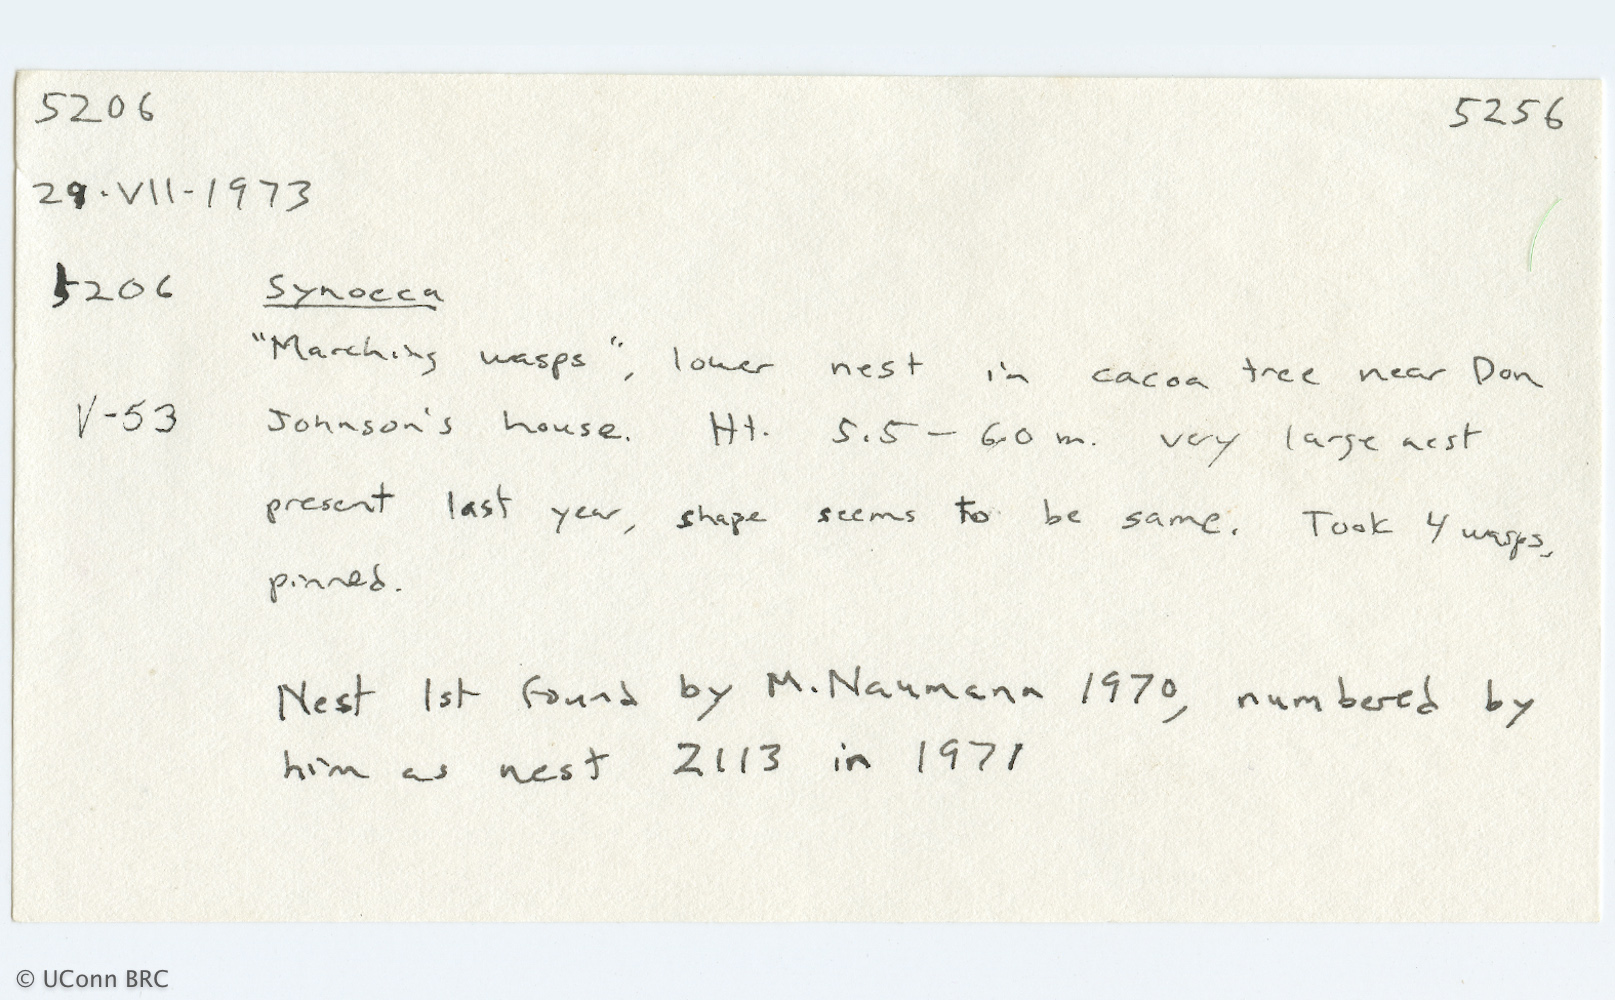 5206 5256
29-VII-1973
5206 Synoeca
"Marching wasps", lower nest in cacoa tree near Don
V-53 Johnson's house. Ht. 5.5-6.0 m. very large nest
present last year, shape seems to be same. Took 4 wasps,
pinned.
Nest 1st found by M. Naumann 1970, numbered by
him as nest 2113 in 1971
© UConn BRC